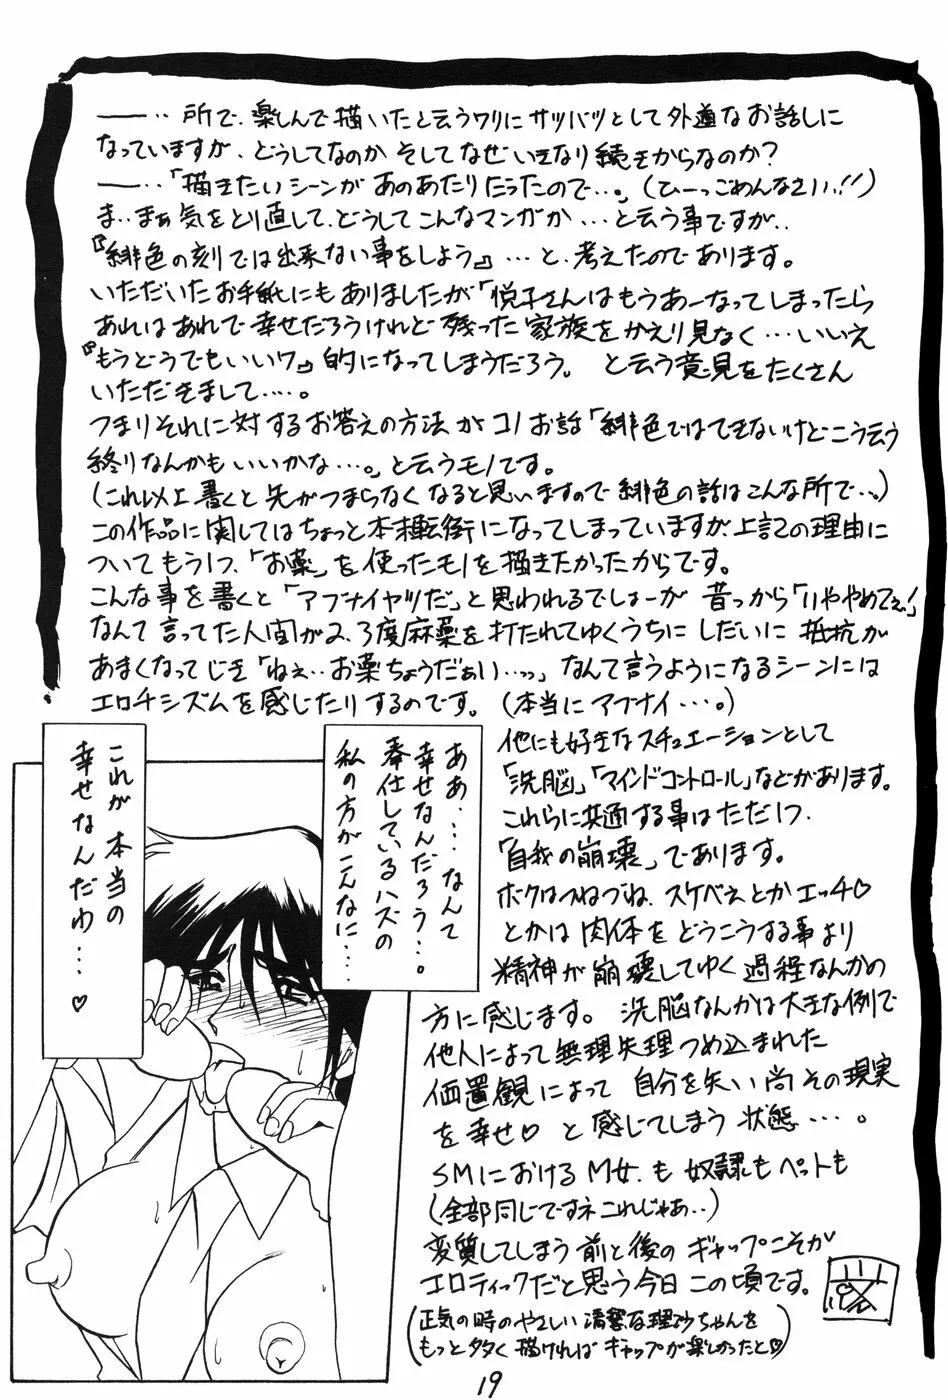 ――‥ 所で、楽しんで描いたと云うワリにサツバツとして外道なお話しに
なっていますが、どうしてなのか そしてなぜいきなり続きからなのか?
――‥「描きたいシーンがあのあたりだったので…。」(ひーっごめんなさいっ!!)
ま‥まぁ気をとり直して、どうしてこんなマンガか…と云う事ですが‥
『緋色の刻では出来ない事をしよう』…と、考えたのであります。
いただいたお手紙にもありましたが「悦子さんはもうあーなってしまったら
あれはあれで幸せだろうけれど残った家族をかえり見なく…いいえ
『もうどうでもいいワ』的になってしまうだろう。 と云う意見をたくさん
いただきまして…。
つまりそれに対するお答えの方法がコノお話「緋色ではできないけどこう云う
終りなんかもいいかな…。」と云うモノです。
(これ以上書くと先がつまらなくなると思いますので緋色の話はこんな所で…。)
この作品に関してはちょっと本末転倒になってしまっていますが、上記の理由に
ついてもう1つ、「お薬」を使ったモノを描きたかったからです。
こんな事を書くと「アブナイヤツだ」と思われるでしょーが 昔っから「いややめてぇ!」
なんて言ってた人間が2、3度麻薬を打たれてゆくうちにしだいに 抵抗が
あまくなってじき「ねぇ‥お薬ちょうだぁい…っ」なんて言うようになるシーンには
エロチシズムを感じたりするのです。(本当にアブナイ…。)
他にも好きなスチュエーションとして
「洗脳」「マインドコントロール」などがあります。
これらに共通する事はただ1つ
「自我の崩壊」であります。
ボクはつねづね、スケベぇとかエッチ♡
とかは肉体をどうこうする事より
精神が崩壊してゆく過程なんかの
方に感じます。 洗脳なんかは大きな例で
他人によって無理矢理つめ込まれた
価置観によって 自分を失い尚その現実
を幸せ♡ と感じてしまう状態…。
SMにおけるM女、も奴隷もペットも
(全部同じですネこれじゃあ‥)
変質してしまう前と後のギャップこそが
エロティックだと思う今日この頃です。
(正気の時のやさしい清響な理沙ちゃんを
もっと多く描ければギャップが楽しかったと♡)
ああ…なんて
幸せなんだろう…。
奉仕しているハズの
私の方がこんなに…
これが本当の
幸せなんだわ…♡
19